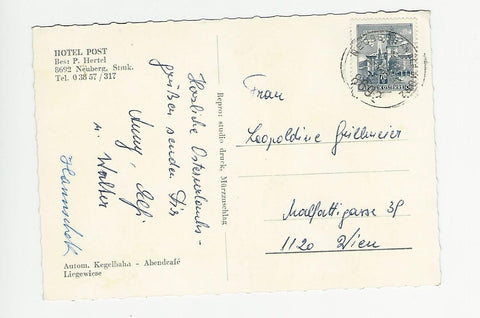 HOTEL POST
Bes: P. Hertel
8692 Neuberg, Stmk.
Tel. 0 38 57 / 317
Herzliche Osterurlaubs-
grüßen senden Dir
Anny,
u. Walter
Hannschek
Autom. Kegelbahn - Abendcafé
Liegewiese
Repro: studio druck, Mürzzuschlag
Frau
Leopoldine Grillmeier
Malfattigasse 39
1120 Wien